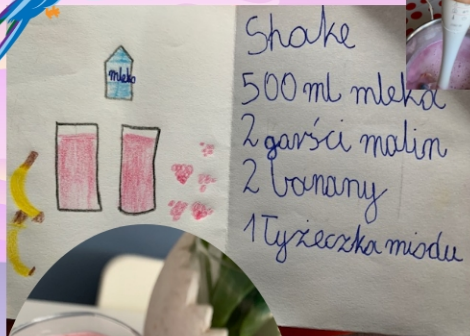 mleko
Shake
500 ml mleka
2 garści malin
2 banany
1 łyżeczka miodu